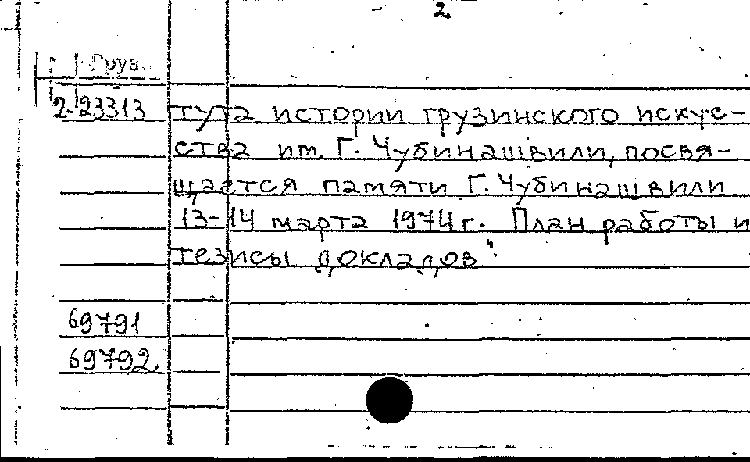 2
Груз.
2-23313 тута истории грузинского искус-
ства им. Г. Чубинашвили, посвя-
щается памяти Г. Чубинашвили
13-14 марта 1974 г. План работы и
тезисы докладов"
69791
69792.